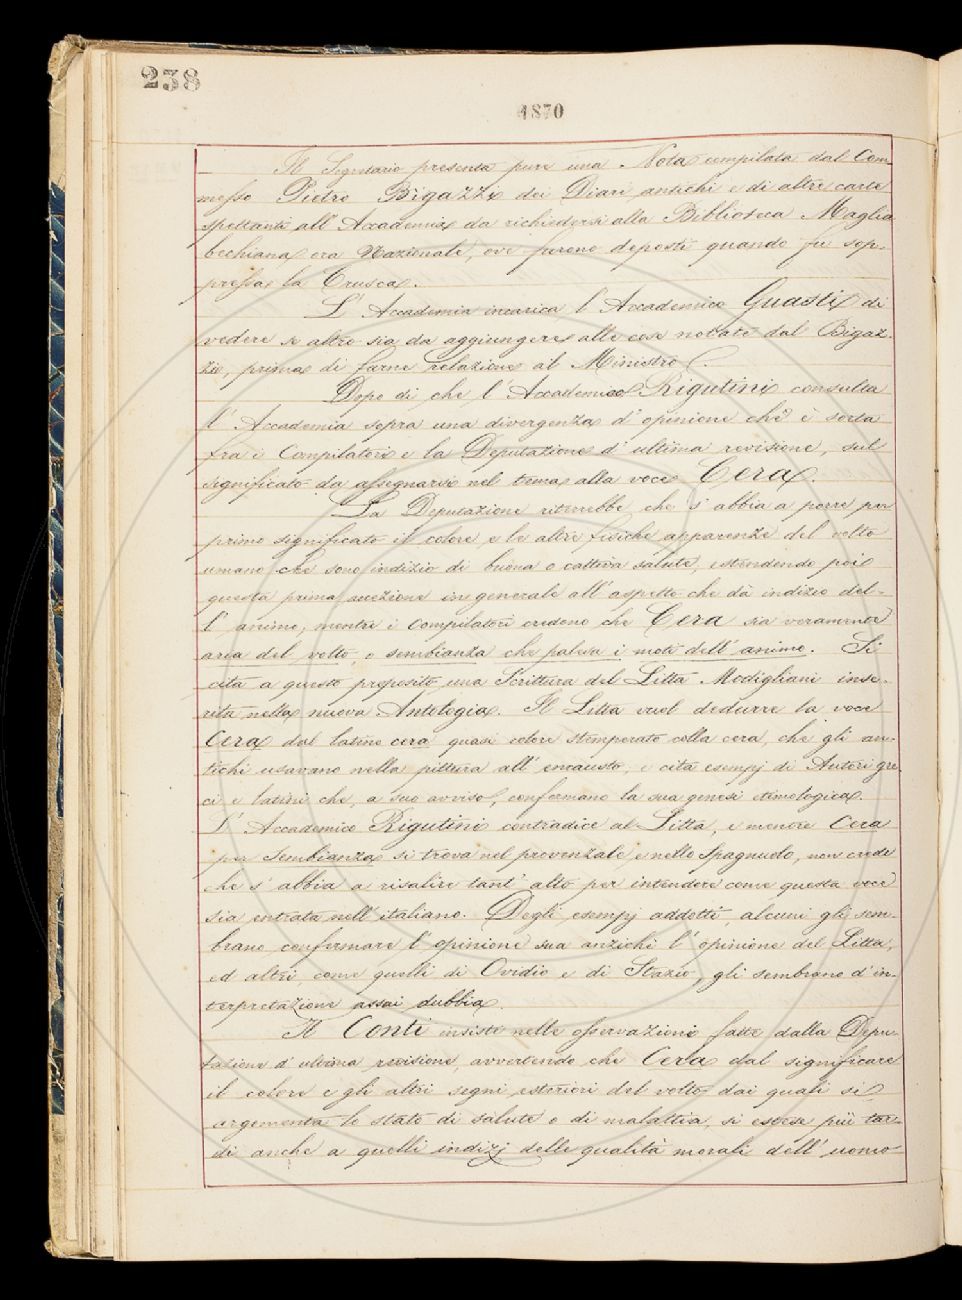 238
1870
Il Segretario presenta pure una Nota compilata dal Com
messo Pietro Bigazzi dei Diari antichi e di altre carte
spettanti all'Accademia da richiedersi alla Biblioteca Maglia
bechiana ora Nazionale, ove furono deposti quando fu sop-
pressa la Crusca.
L'Accademia incarica l'Accademico Guasti di
vedere se altro sia da aggiungere alle cose notate dal Bigaz-
zi, prima di farne relazione al Ministro.
Dopo di che l'Accademico Rigutini consulta
l'Accademia sopra una divergenza d'opinione che è sorta
fra i Compilatori e la Deputazione d'ultima revisione, sul
significato da assegnarsi nel tema alla voce Cera.
La Deputazione riterrebbe che s'abbia a porre per
primo significato il colore e le altre fisiche apparenze del volto
umano che sono indizio di buona o cattiva salute, estendendo poi
questa prima accezione in generale all'aspetto che dà indizio del-
l'animo; mentre i Compilatori credono che Cera sia veramente
aria del volto, o sembianza che palesa i moti dell'animo. Si
cita a questo proposito una Scrittura del Litta Modigliani inse-
rita nella nuova Antologia. Il Litta vuol dedurre la voce
Cera dal latino cera quasi colore stemperato colla cera, che gli an-
tichi usavano nella pittura all'encausto, e cita esempj di Autori gre
ci e latini che, a suo avviso, confermano la sua genesi etimologica.
L'Accademico Rigutini contradice al Litta, e mentre Cera
per Sembianza si trova nel provenzale e nello Spagnuolo, non crede
che s'abbia a risalire tant'alto per intendere come questa voce
sia entrata nell'italiano. Degli esempj addotti, alcuni gli sem-
brano confermare l'opinione sua anzichè l'opinione del Litta,
ed altri, come quelli di Ovidio e di Stazio, gli sembrano d'in-
terpretazione assai dubbia.
Il Conti insiste nelle osservazioni fatte dalla Depu-
tazione d'ultima revisione, avvertendo che Cera dal significare
il colore e gli altri segni esteriori del volto dai quali si
argomenta lo stato di salute o di malattia, si estese più tar-
di anche a quelli indizj delle qualità morali dell'uomo